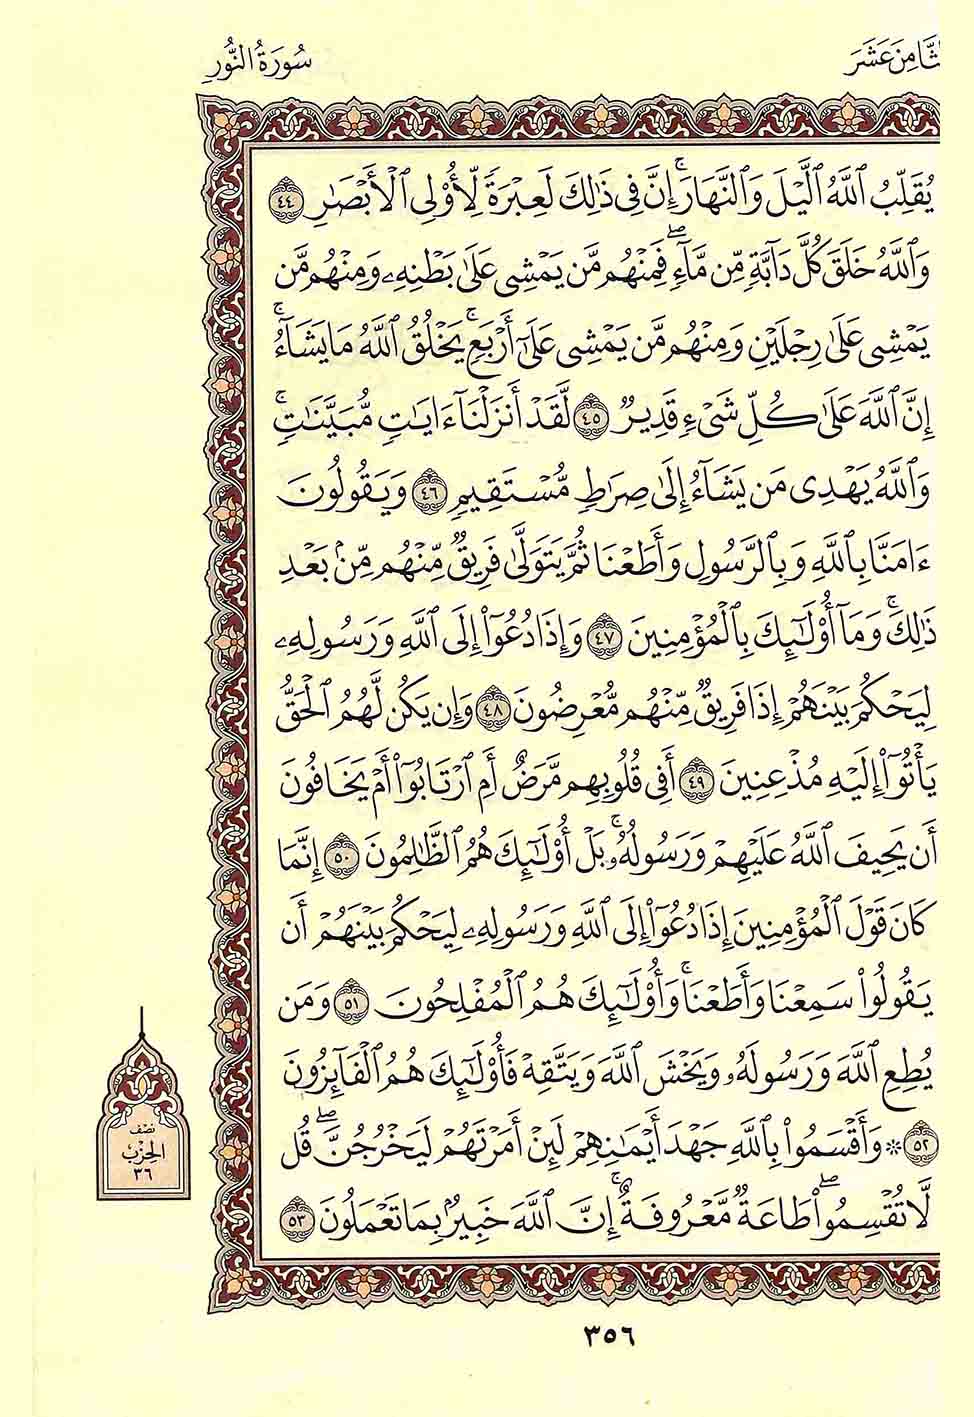 ثَّامِنَ عَشَرَ
سُورَةُ النُّورِ
يُقَلِّبُ ٱللَّهُ ٱلَّيْلَ وَٱلنَّهَارَۚ إِنَّ فِى ذَٰلِكَ لَعِبْرَةً لِّأُو۟لِى ٱلْأَبْصَٰرِ ٤٤
وَٱللَّهُ خَلَقَ كُلَّ دَآبَّةٍ مِّن مَّآءٍۖ فَمِنْهُم مَّن يَمْشِى عَلَىٰ بَطْنِهِۦ وَمِنْهُم مَّن
يَمْشِى عَلَىٰ رِجْلَيْنِ وَمِنْهُم مَّن يَمْشِى عَلَىٰٓ أَرْبَعٍۚ يَخْلُقُ ٱللَّهُ مَا يَشَآءُۚ
إِنَّ ٱللَّهَ عَلَىٰ كُلِّ شَىْءٍ قَدِيرٌ ٤٥ لَّقَدْ أَنزَلْنَآ ءَايَٰتٍ مُّبَيِّنَٰتٍۚ
وَٱللَّهُ يَهْدِى مَن يَشَآءُ إِلَىٰ صِرَٰطٍ مُّسْتَقِيمٍ ٤٦ وَيَقُولُونَ
ءَامَنَّا بِٱللَّهِ وَبِٱلرَّسُولِ وَأَطَعْنَا ثُمَّ يَتَوَلَّىٰ فَرِيقٌ مِّنْهُم مِّنۢ بَعْدِ
ذَٰلِكَۚ وَمَآ أُو۟لَٰٓئِكَ بِٱلْمُؤْمِنِينَ ٤٧ وَإِذَا دُعُوٓا۟ إِلَى ٱللَّهِ وَرَسُولِهِۦ
لِيَحْكُمَ بَيْنَهُمْ إِذَا فَرِيقٌ مِّنْهُم مُّعْرِضُونَ ٤٨ وَإِن يَكُن لَّهُمُ ٱلْحَقُّ
يَأْتُوٓا۟ إِلَيْهِ مُذْعِنِينَ ٤٩ أَفِى قُلُوبِهِم مَّرَضٌ أَمِ ٱرْتَابُوٓا۟ أَمْ يَخَافُونَ
أَن يَحِيفَ ٱللَّهُ عَلَيْهِمْ وَرَسُولُهُۥۚ بَلْ أُو۟لَٰٓئِكَ هُمُ ٱلظَّٰلِمُونَ ٥٠ إِنَّمَا
كَانَ قَوْلَ ٱلْمُؤْمِنِينَ إِذَا دُعُوٓا۟ إِلَى ٱللَّهِ وَرَسُولِهِۦ لِيَحْكُمَ بَيْنَهُمْ أَن
يَقُولُوا۟ سَمِعْنَا وَأَطَعْنَاۚ وَأُو۟لَٰٓئِكَ هُمُ ٱلْمُفْلِحُونَ ٥١ وَمَن
يُطِعِ ٱللَّهَ وَرَسُولَهُۥ وَيَخْشَ ٱللَّهَ وَيَتَّقْهِ فَأُو۟لَٰٓئِكَ هُمُ ٱلْفَآئِزُونَ
٥٢ ۞ وَأَقْسَمُوا۟ بِٱللَّهِ جَهْدَ أَيْمَٰنِهِمْ لَئِنْ أَمَرْتَهُمْ لَيَخْرُجُنَّۖ قُل
لَّا تُقْسِمُوا۟ۖ طَاعَةٌ مَّعْرُوفَةٌۚ إِنَّ ٱللَّهَ خَبِيرٌۢ بِمَا تَعْمَلُونَ ٥٣
نصف
الحزب
٣٦
٣٥٦